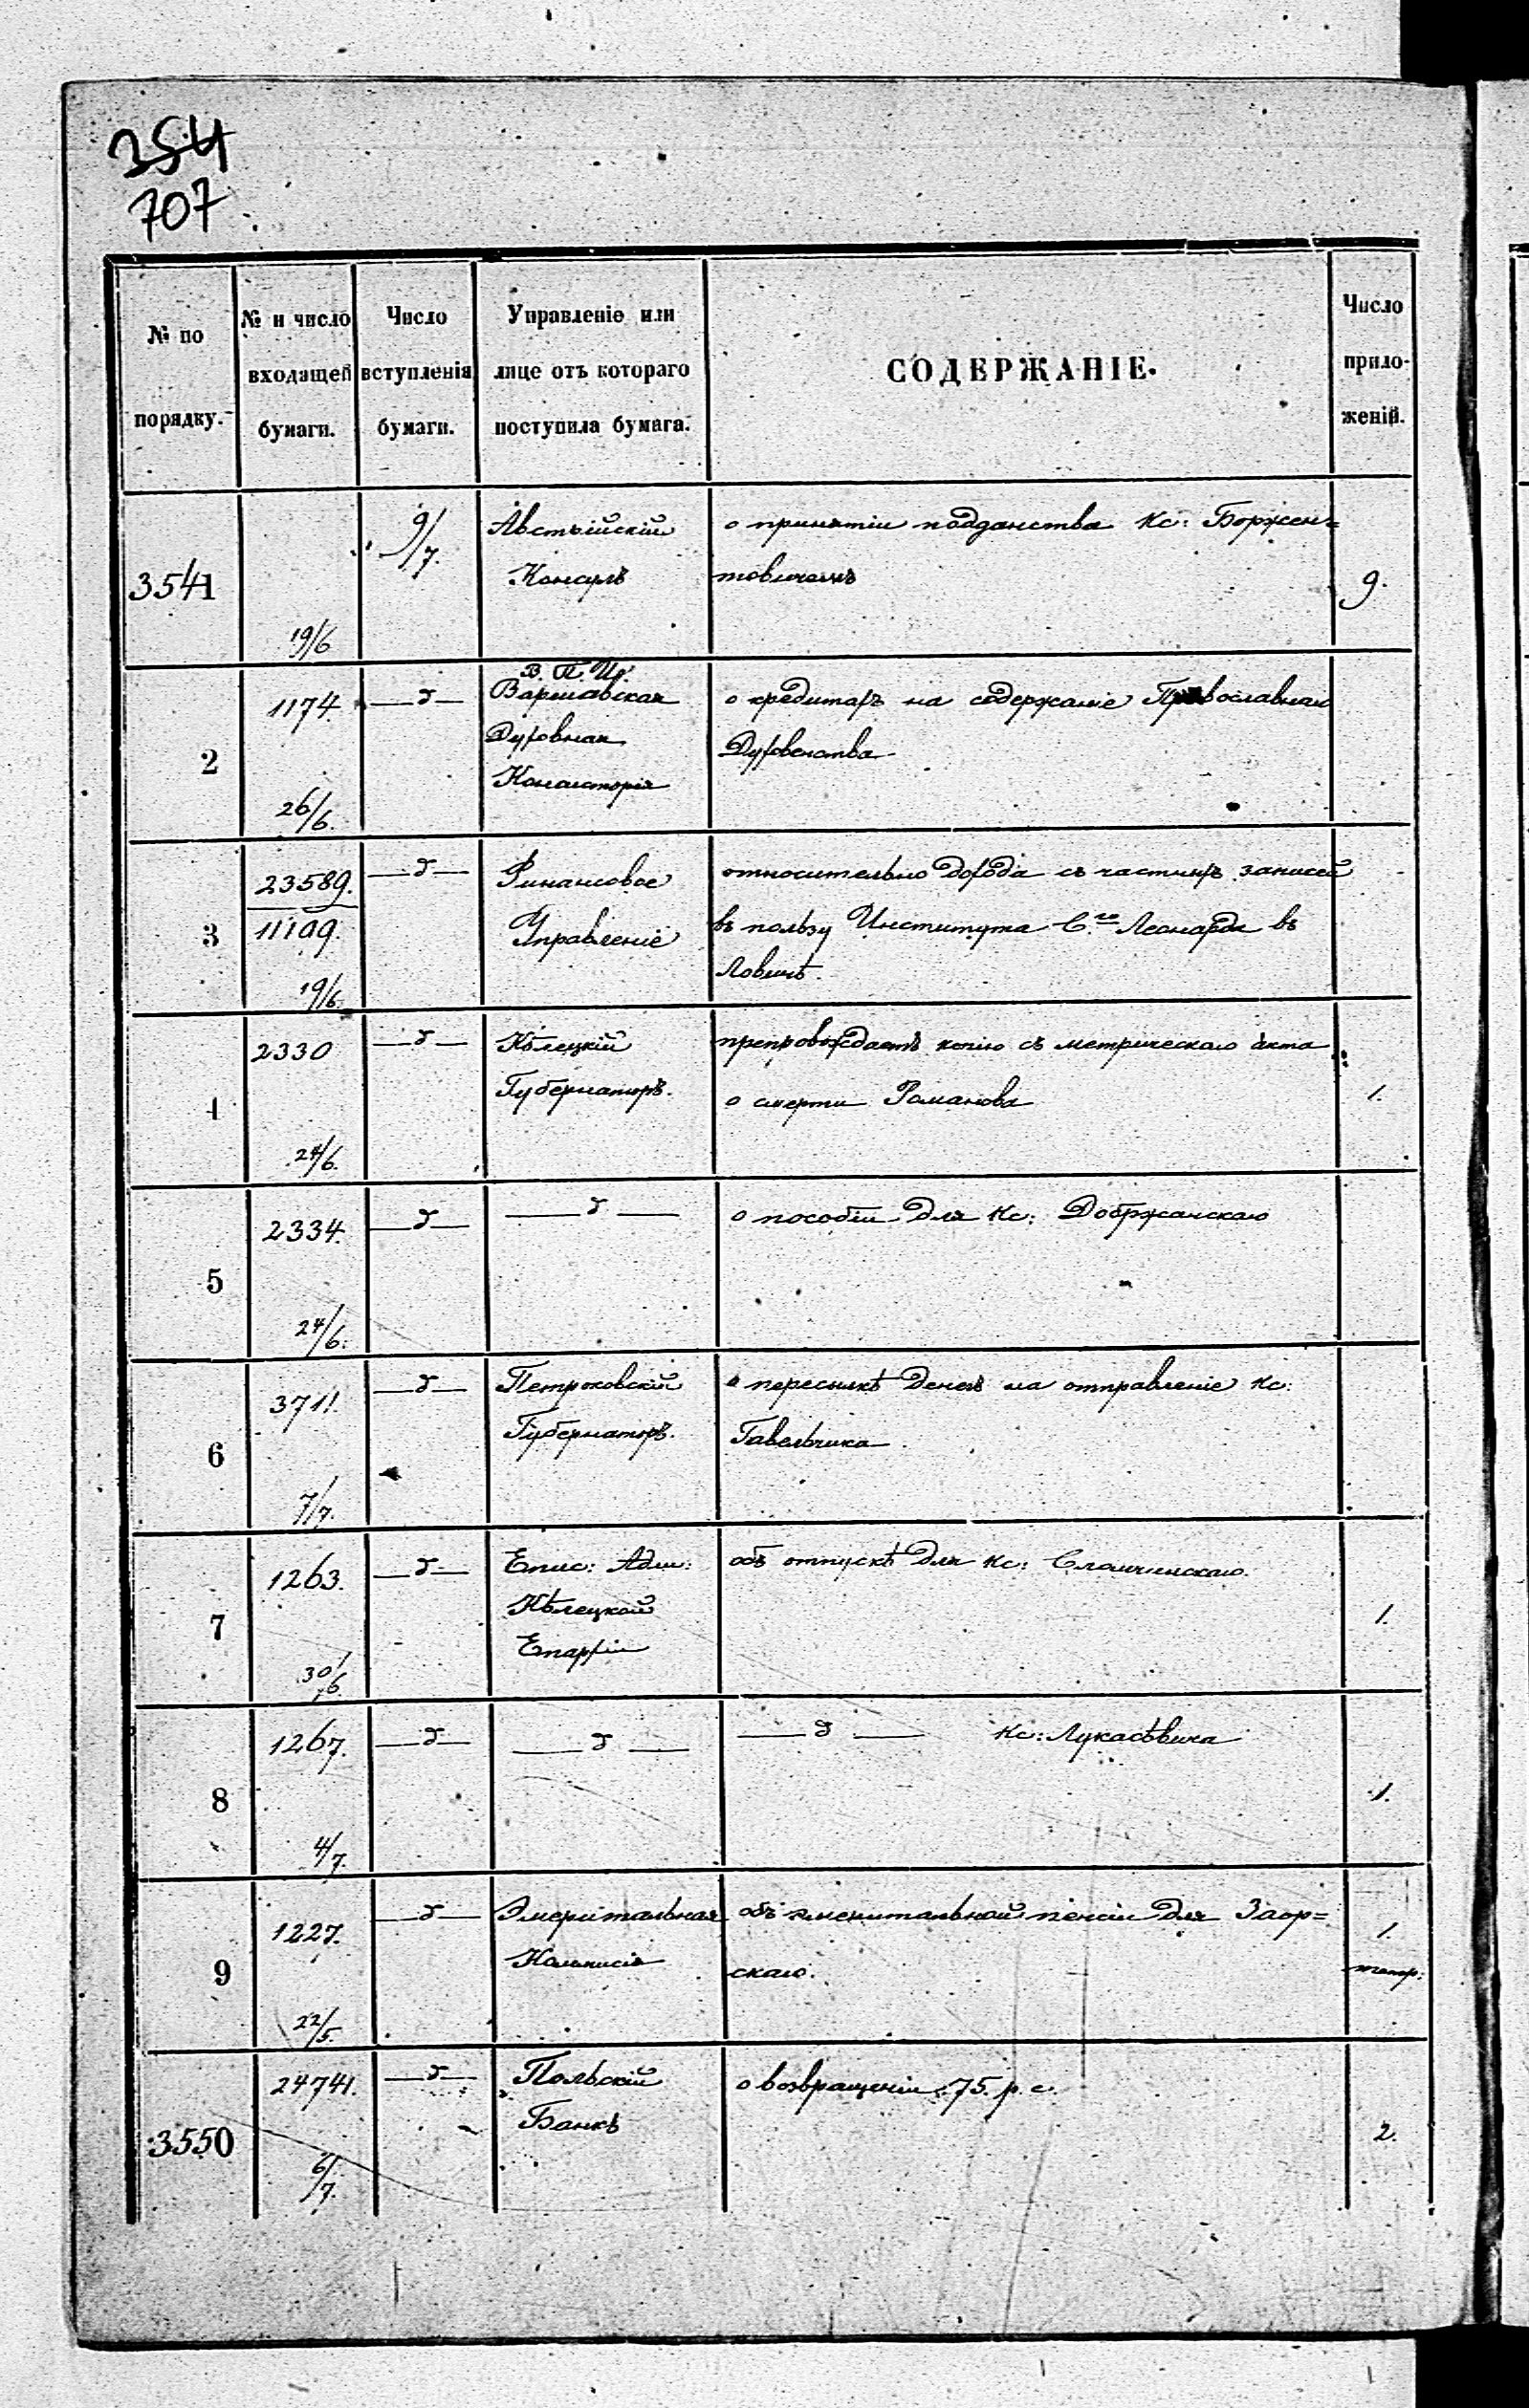 354
707
№ по порядку.
№ и число входящей бумаги.
Число вступленія бумаги.
Управленіе или лице отъ котораго поступила бумага.
СОДЕРЖАНІЕ.
Число прило-женій.
3541
19/6
9/7.
Австрійскій
Консулъ
о принятіи подданства Кс: Боржен=
товичемъ
9.
2
1174.
26/6.
—д—
В. П. Ис.
Варшавская
Духовная
Консисторія
о кредитахъ на содержаніе Православнаго
Духовенства
3
23589.
11199.
19/6.
—д—
Финансовое
Управленіе
относительно дохода съ частныхъ записей
въ пользу Института С.го Леонарда въ
Ловичѣ.
4
2330
24/6.
—д—
Кѣлецкій
Губернаторъ.
препровождаетъ копію съ метрическаго акта
о смерти Романова
1.
5
2334.
24/6.
—д—
—д—
о пособіи для Кс: Добржанскаго
6
3711.
7/7.
—д—
Петроковскій
Губернаторъ.
о пересылкѣ денегъ на отправленіе Кс:
Гавельчика
7
1263.
30/6.
—д—
Епис: Адм:
Кѣлецкой
Епархіи
объ отпускѣ для Кс: Сломчинскаго.
1.
8
1267.
4/7.
—д—
—д—
—д— Кс: Лукасѣвича
1.
9
1227.
22/5.
—д—
Эмеритальная
Коммисія
объ эмеритальной пенсіи для Заор=
скаго.
1.
3550
24741.
6/7.
—д—
Польскій
Банкъ
о возвращеніи 75. р. с.
2.